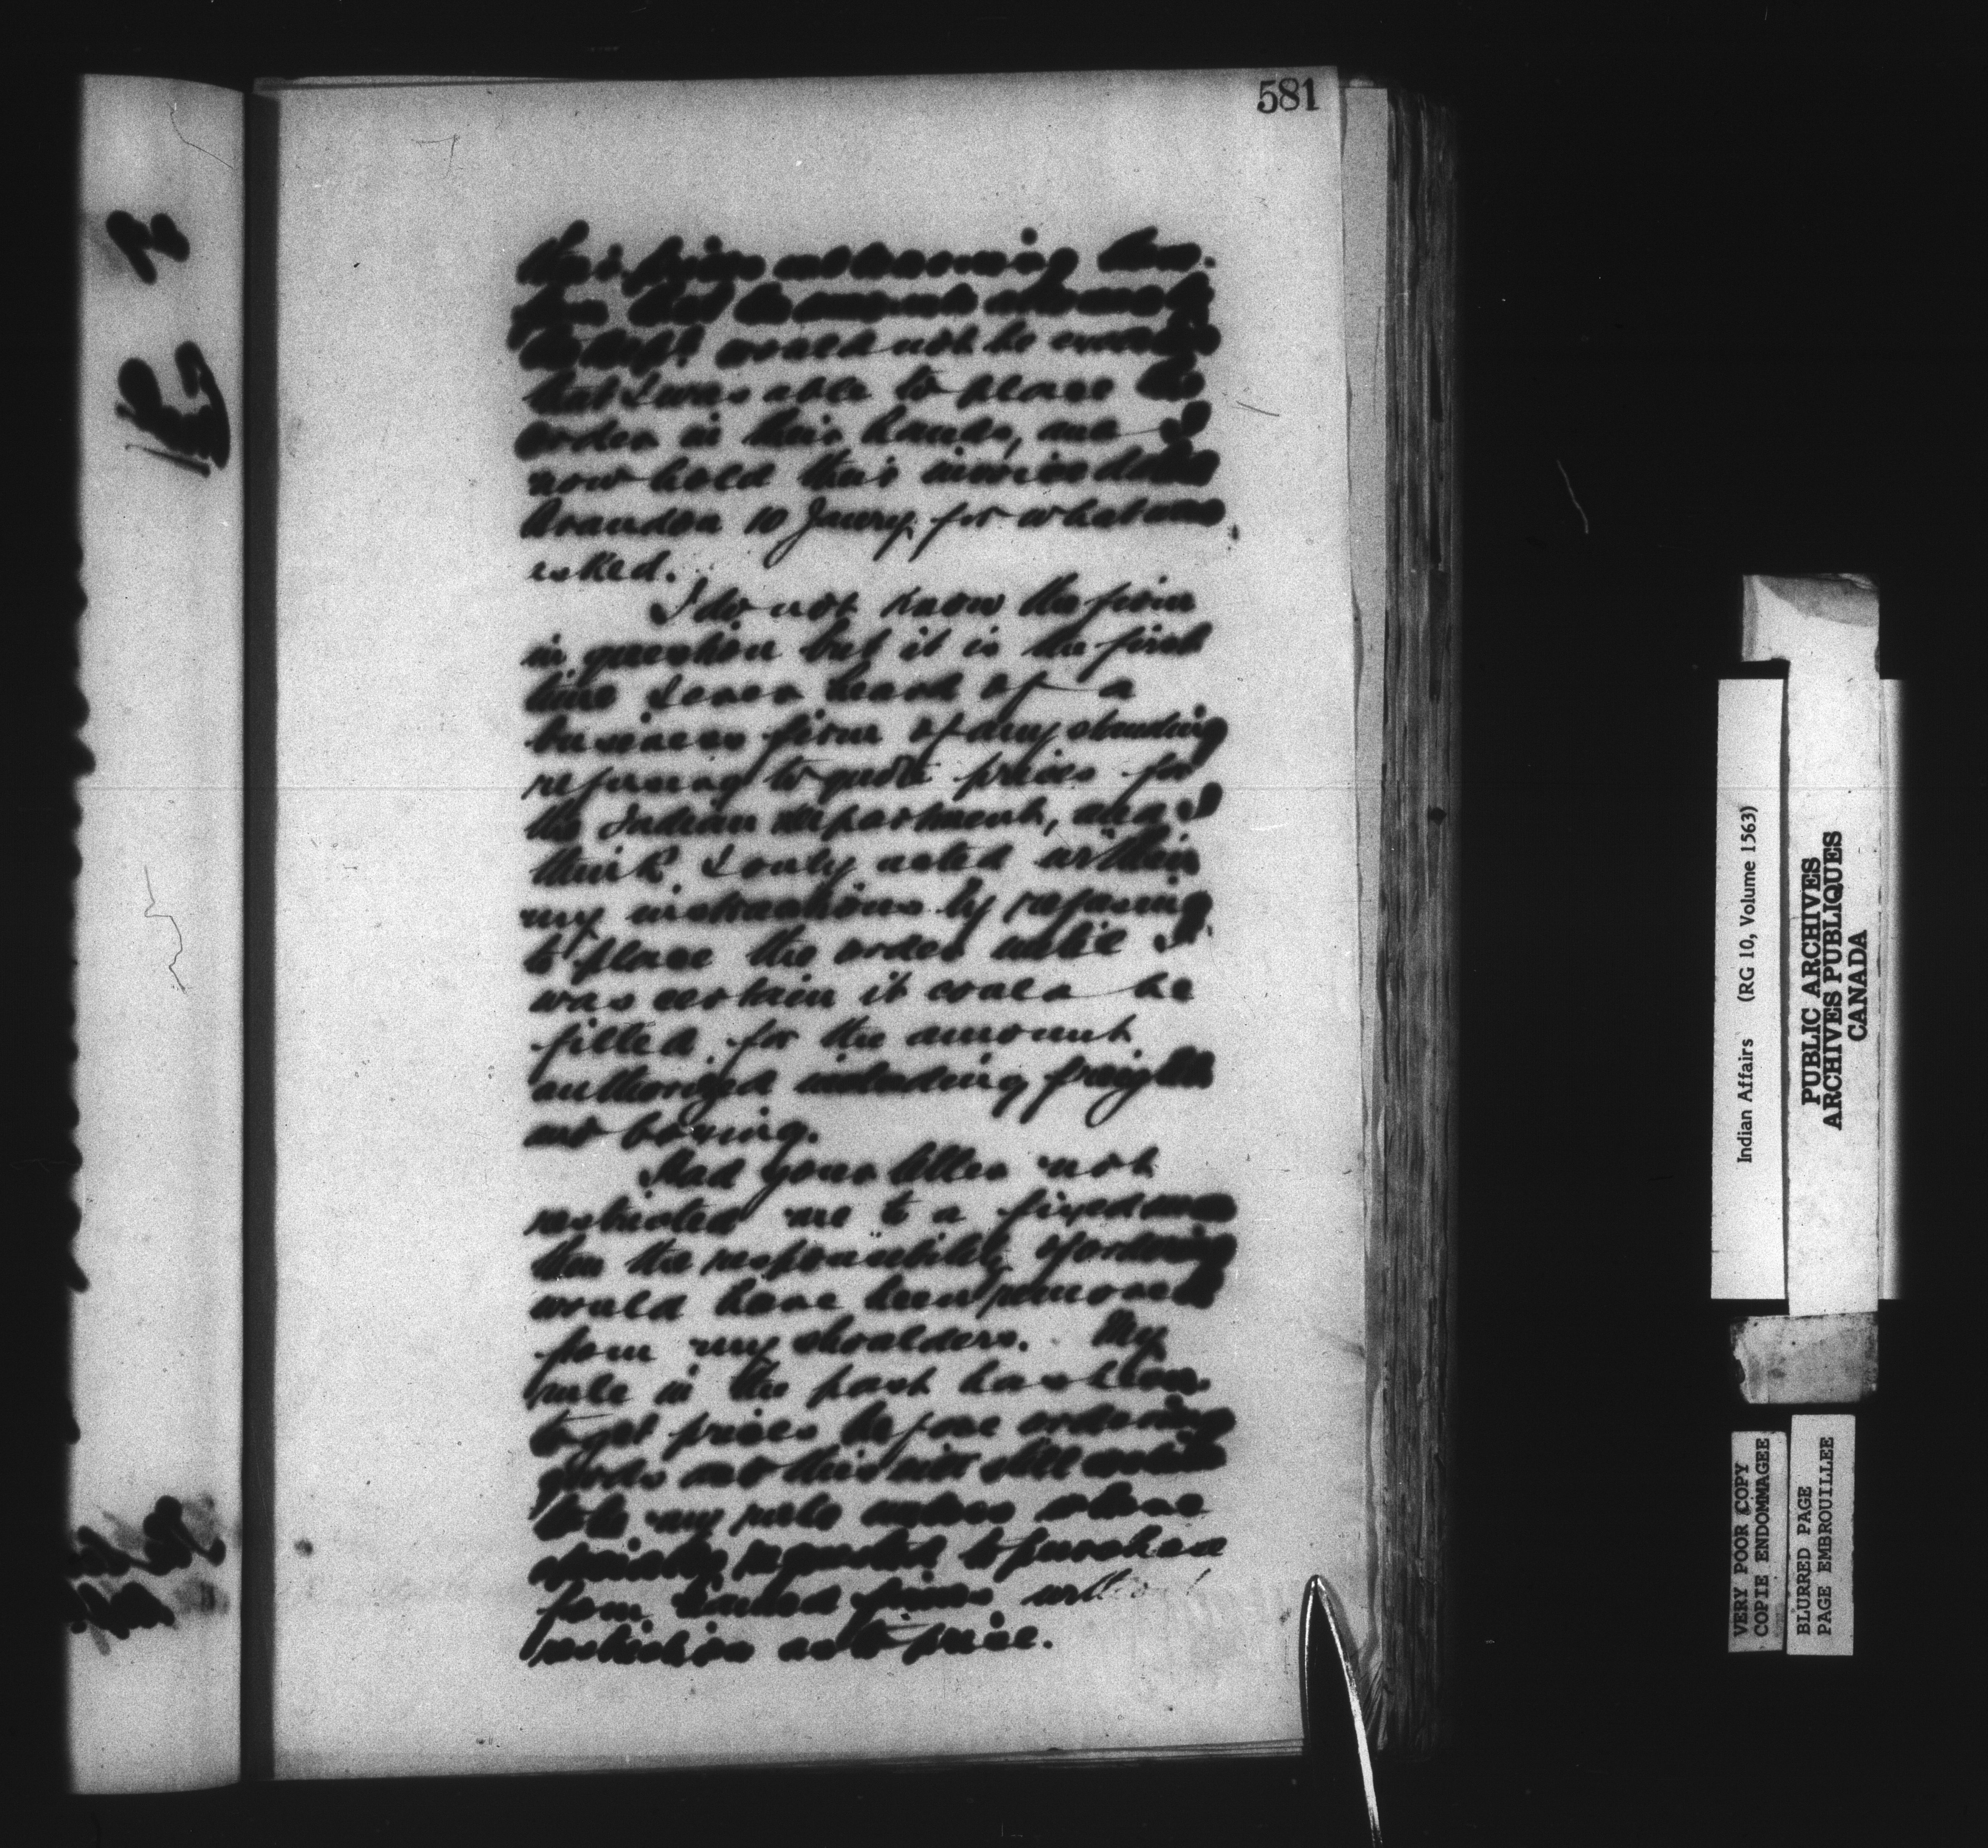 581
their prices and learning
from that the amounts
the Dept would not be exceeded
that I was able to place the
order in their hands, and I
now hold their invoice dated
Brandon 10 Janry. for what was
asked.
I do not know the firm
in question but it is the first
time I ever heard of a
business firm of any standing
refusing to quote prices for
the Indian Department, and I
think I only acted within
my instructions by refusing
to place the order until I
was certain it could be
filled for the amount
authorized including freight
and boxing.
Had your letter not
restricted me to a fixed
then the responsibility of ordering
would have been removed
from my shoulders. My
rule in the past has been
to get prices before ordering
goods and this will still continue
to be my rule unless where
specially requested to purchase
from named firms without
restriction as to price.
Indian Affairs (RG 10, Volume 1563)
PUBLIC ARCHIVES
ARCHIVES PUBLIQUES
CANADA
VERY POOR COPY
COPIE ENDOMMAGEE
BLURRED PAGE
PAGE EMBROUILLEE